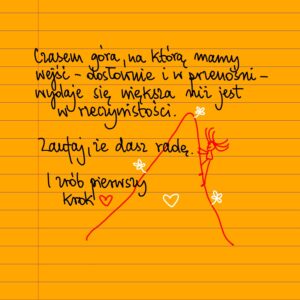 Czasem góra, na którą mamy
wejść – dosłownie i w przenośni –
wydaje się większa niż jest
w rzeczywistości.
Zaufaj, że dasz radę.
I zrób pierwszy
krok